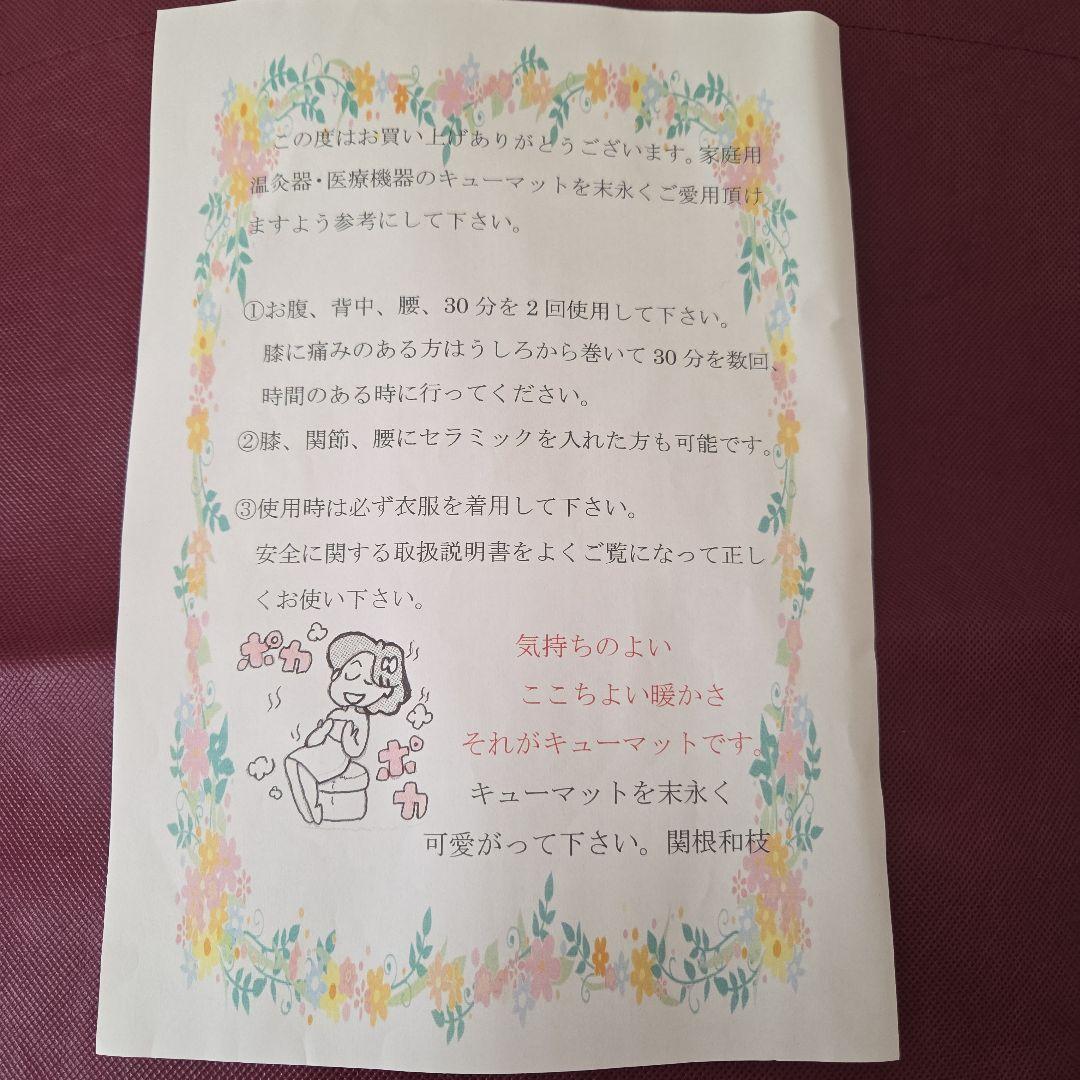 この度はお買い上げありがとうございます。家庭用
温灸器・医療機器のキューマットを末永くご愛用頂け
ますよう参考にして下さい。
①お腹、背中、腰、30分を2回使用して下さい。
膝に痛みのある方はうしろから巻いて30分を数回、
時間のある時に行ってください。
②膝、関節、腰にセラミックを入れた方も可能です。
③使用時は必ず衣服を着用して下さい。
安全に関する取扱説明書をよくご覧になって正し
くお使い下さい。
ポカ
ポカ
気持ちのよい
ここちよい暖かさ
それがキューマットです。
キューマットを末永く
可愛がって下さい。関根和枝